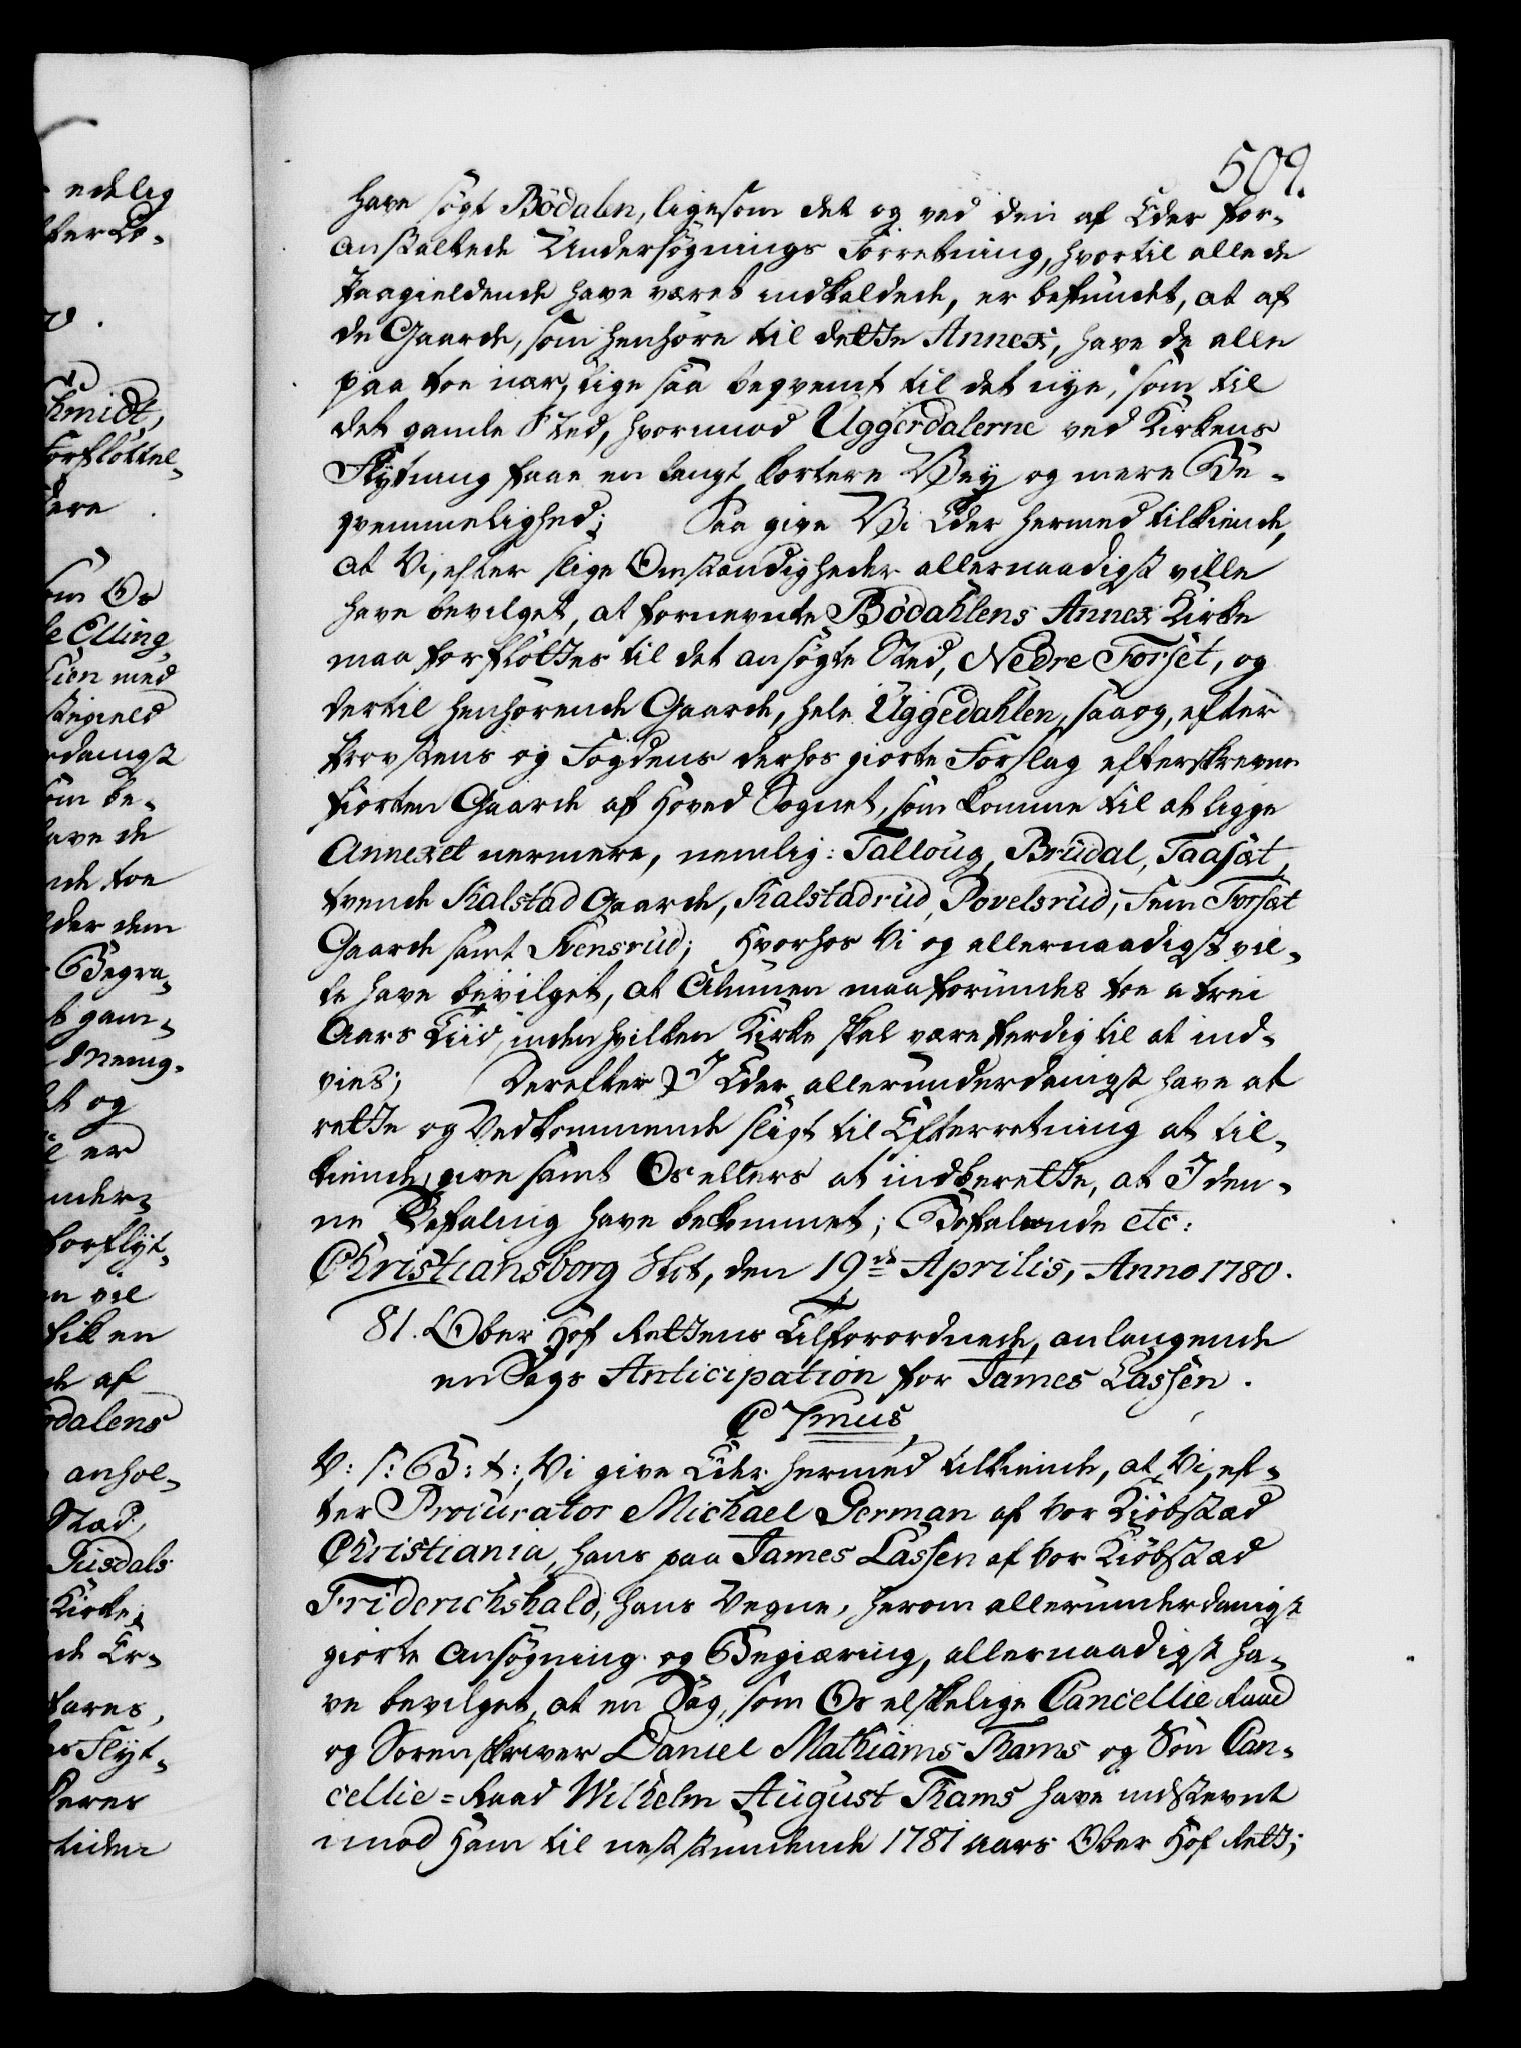 509.
have søgt Bödalen, ligesom det og ved den af Eder for-
anstaltede Undersøgnings Forretning, hvortil alle de
Paagieldende have været indkaldede, er befundet, at af
de Gaarde, som henhöre til dette Annex, have de alle
paa toe nær, lige saa beqvemt til det nye, som til
det gamle Sted, hvorimod Uggerdalerne ved Kirkens
Flytning faae en langt kortere Vey og mere Be-
qvemmelighed; Saa give Vi Eder hermed tilkiende,
at Vi, efter slige Omstændigheder allernaadigst ville
have bevilget, at fornevnte Bödahlens Annex Kirke
maa forflöttes til det ansøgte Sted, Nedre Forset, og
dertil henhörende Gaarde, hele Uggedahlen, saa og, efter
Provstens og Fogdens derhos giorte Forslag efterskrevne
fiorten Gaarde af Hoved Sognet, som komme til at ligge
Annexet nermere, nemlig: Talloug, Brüdal, Taasæt,
tvende Kalstad Gaarde, Kalstadrud, Povelsrud, Fem Forsæt
Gaarde samt Svensrud; Hvorhos Vi og allernaadigst vil-
le have bevilget, at Almuen maa forundes toe a trei
Aars Tiid, inden hvilken Kirke skal være færdig til at ind-
vies; Derefter I Eder allerunderdanigst have at
rette og Vedkommende sligt til Efterretning at til-
kiende give samt Os ellers at indberette, at I den-
ne Befaling have bekommet; Befalende etc:
Christiansborg Slot, den 19de Aprilis, Anno 1780.
81. Ober Hof Rettens Tilforordnede, anlangende
en Sags Anticipation for James Lassen.
C 7mus
V: S: G: t:, Vi give Eder hermed tilkiende, at Vi, ef-
ter Procurator Michael German af vor Kiöbstæd
Christiania, hans paa James Lassen af vor Kiöbstæd
Friderichshald, hans Vegne, herom allerunderdanigst
giorte Ansøgning og Begiæring, allernaadigst ha-
ve bevilget, at en Sag, som Os elskelige Cancellie Raad
og Sorenskriver Daniel Mathiams Thams og Sön Can-
cellie=Raad Wilhelm August Thams have indstevnt
imod Ham til neststundende 1781 Aars Ober Hof Rett;